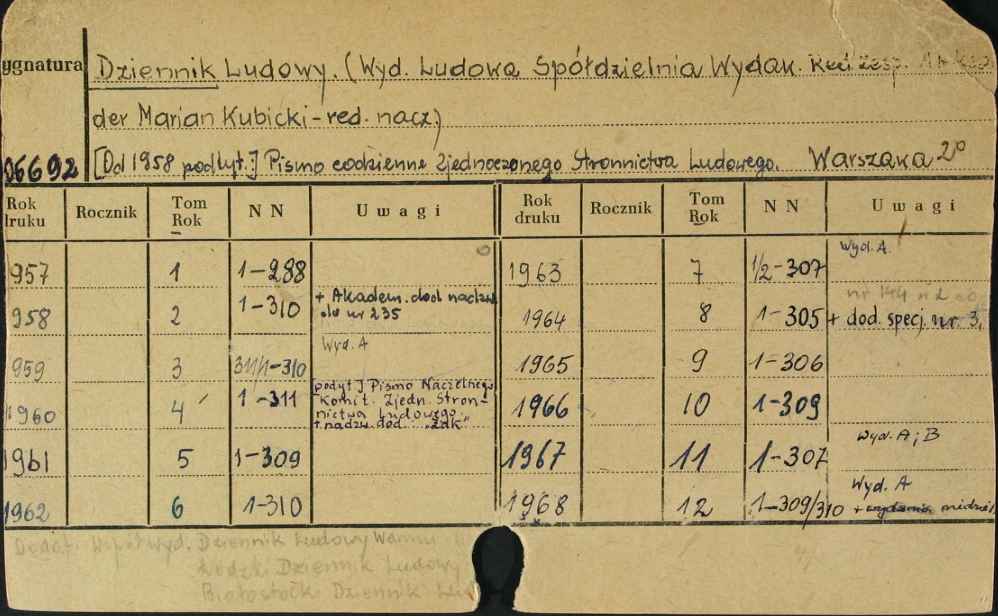 ygnatura Dziennik Ludowy. (Wyd. Ludowa Spółdzielnia Wydaw. Red. zesp.
der Marian Kubicki - red. nacz.)
06692 [Od 1958 podtyt.] Pismo codzienne Zjednoczonego Stronnictwa Ludowego. Warszawa 2°
Rok druku Rocznik Tom Rok NN Uwagi Rok druku Rocznik Tom Rok NN Uwagi
957 1 1-288 1963 7 1/2-307 Wyd. A.
958 2 1-310 + Akadem. dod. nadzw. do nr 235 1964 8 1-305 + dod. specj. nr. 3,
959 3 311/1-310 Wyd. A 1965 9 1-306
1960 4 1-311 podtyt.] Pismo Naczelnego Komit. Zjedn. Stronnictwa Ludowego. + nadzw. dod. 1966 10 1-309
1961 5 1-309 1967 11 1-307 Wyd. A; B
1962 6 1-310 1968 12 1-309/310 Wyd. A + niedziel
Dziennik Ludowy
Łódzki Dziennik Ludowy
Białostocki Dziennik